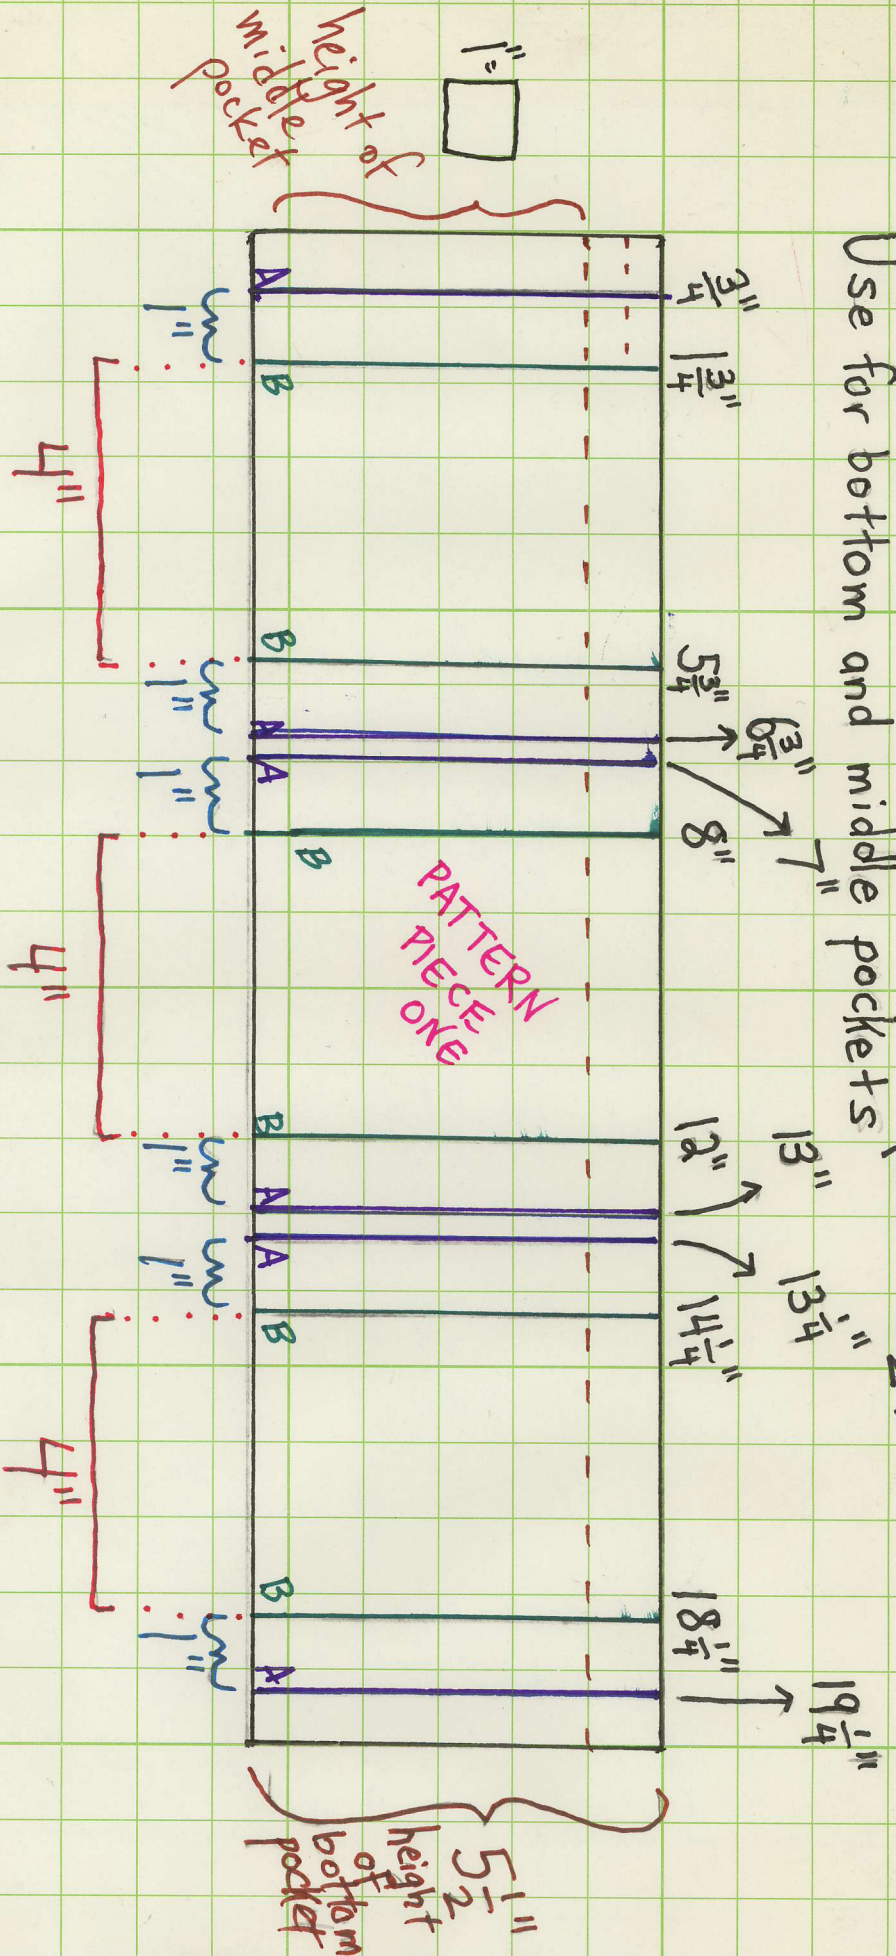 Use for bottom and middle pockets
1"=
height of
middle
pocket
3/4"
1 3/4"
5 3/4"
6 3/4"
7"
8"
12"
13"
13 1/4"
14 1/4"
18 1/4"
19 1/4"
A
B
B
A
A
B
B
A
A
B
B
A
PATTERN
PIECE
ONE
1"
4"
1"
1"
4"
1"
1"
4"
1"
5 1/2"
height
of
bottom
pocket